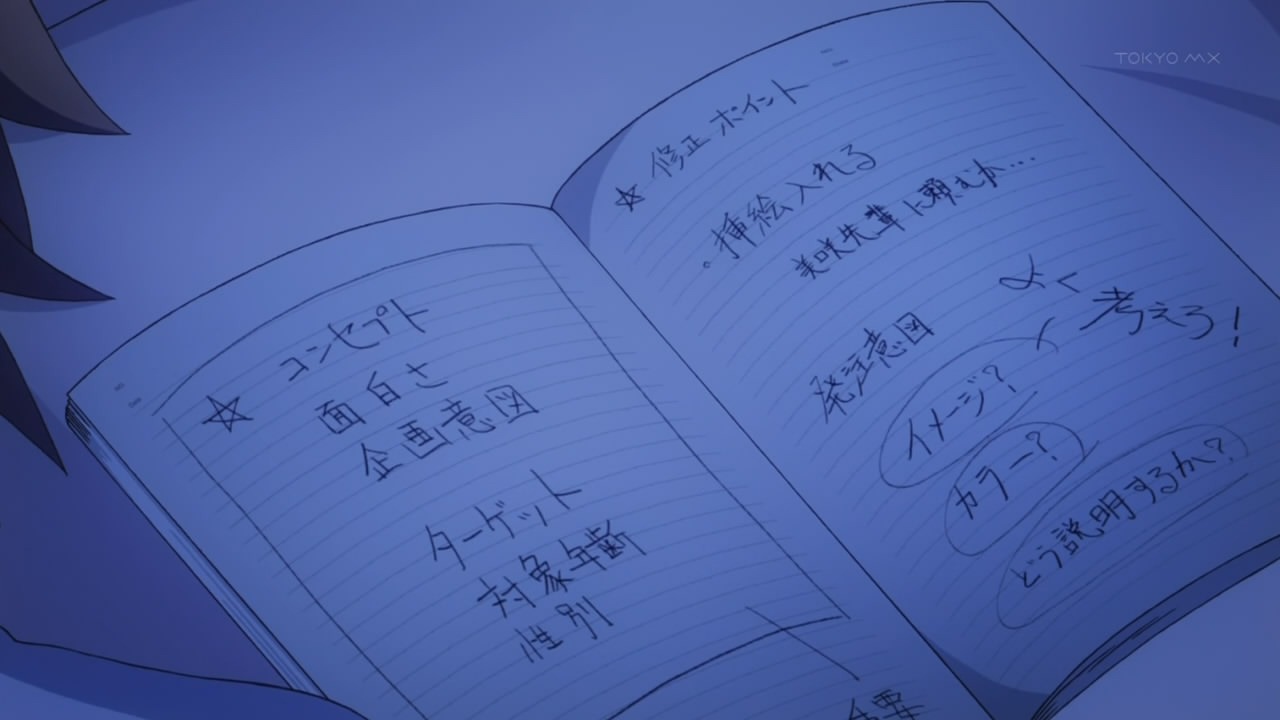 ★ コンセプト
面白さ
企画意図
ターゲット
対象年齢
性別
★ 修正ポイント
・挿絵入れる
美咲先輩に頼むか…
よく考えろ！
発注意図
イメージ？
カラー？
どう説明するか？
TOKYO MX